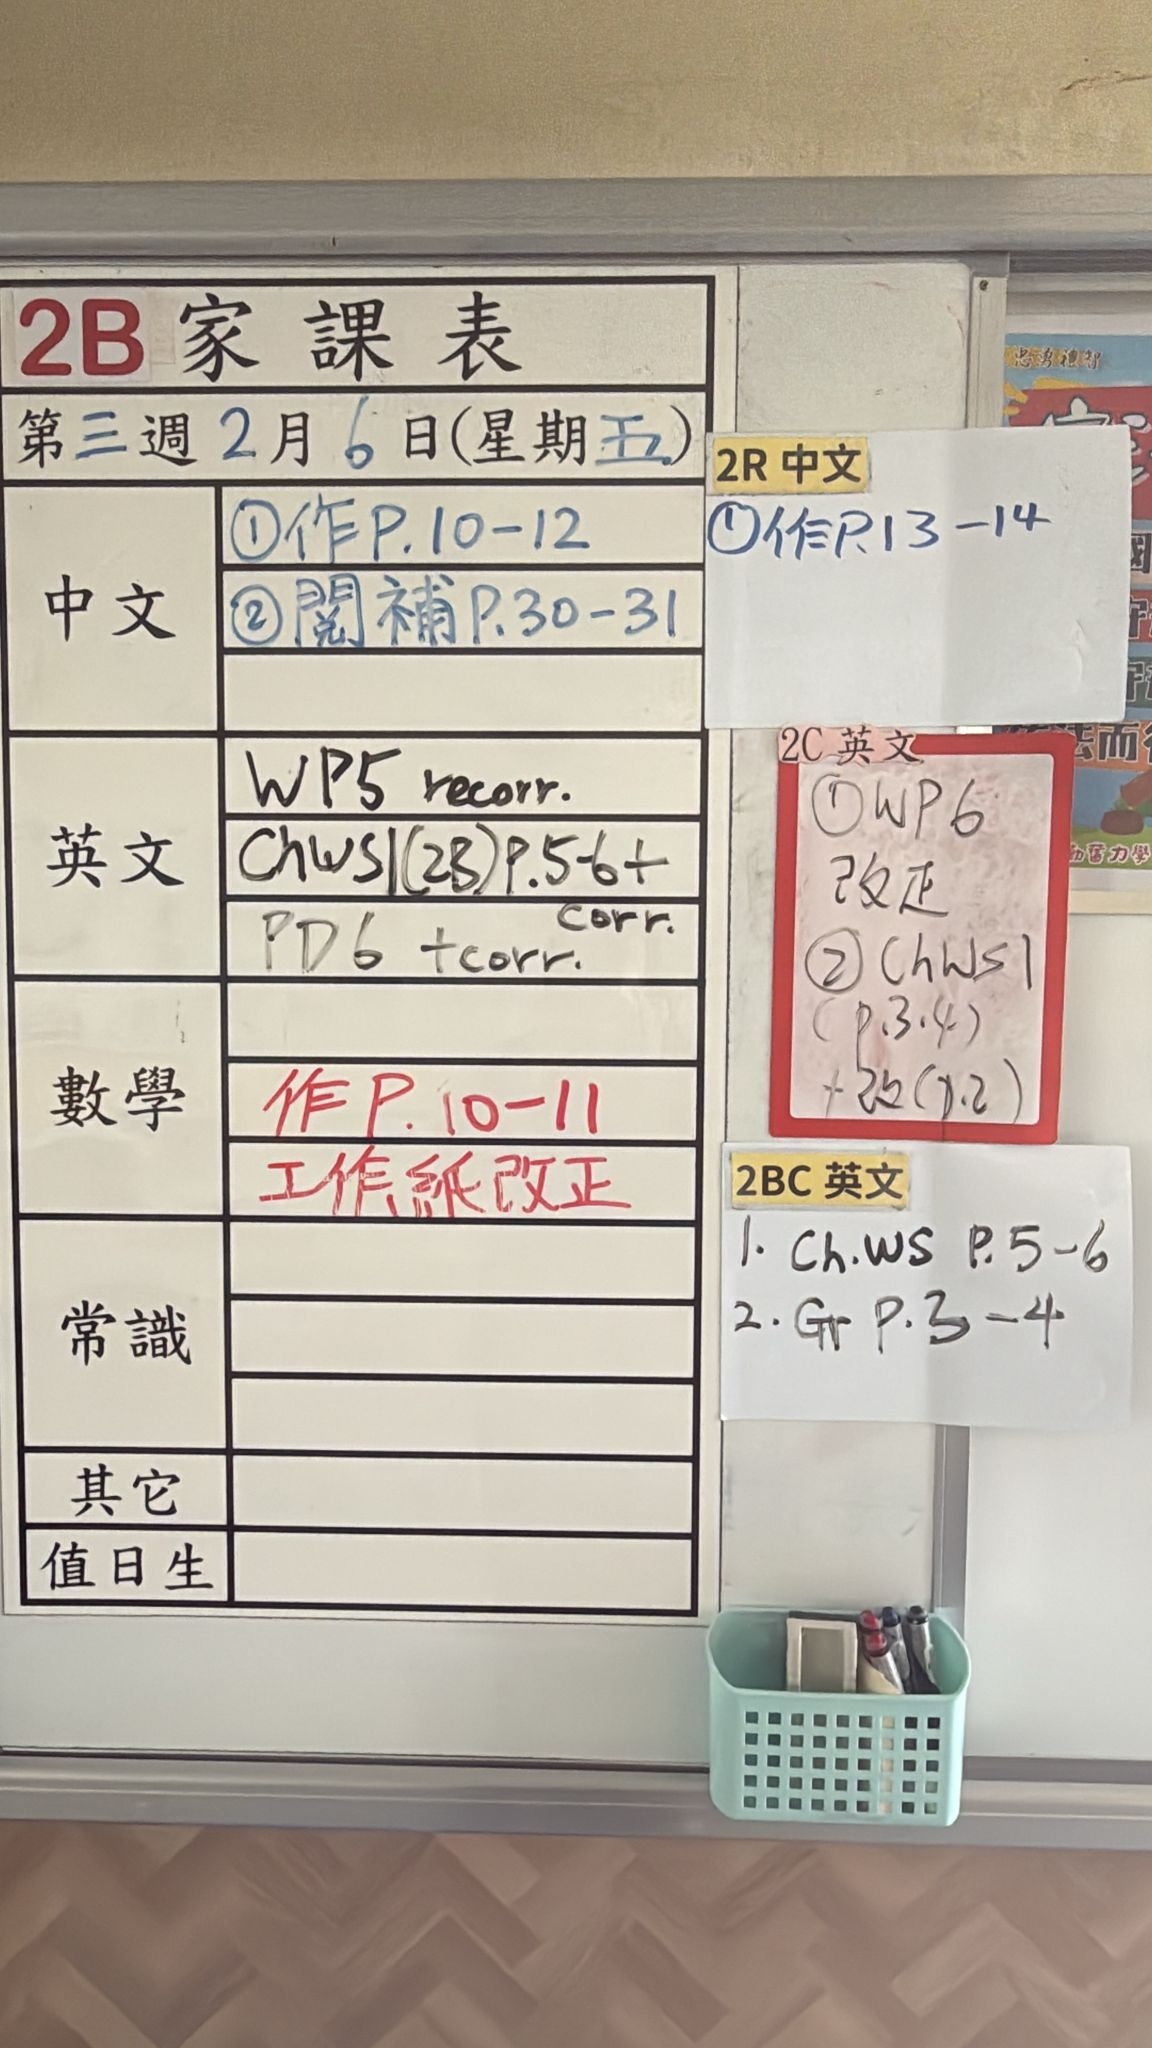 2B 家課表
第三週2月6日(星期五)
中文
①作P.10-12
②閱補P.30-31
英文
WP5 recorr.
ChWS1(2B)P.5-6+
corr.
PD6 +corr.
數學
作P.10-11
工作紙改正
常識
其它
值日生
2R 中文
①作P.13-14
2C 英文
①WP6
改正
②ChWS1
(p.3.4)
+改(p.2)
2BC 英文
1. Ch.WS P.5-6
2. Gr P.3-4
忠勇禮智